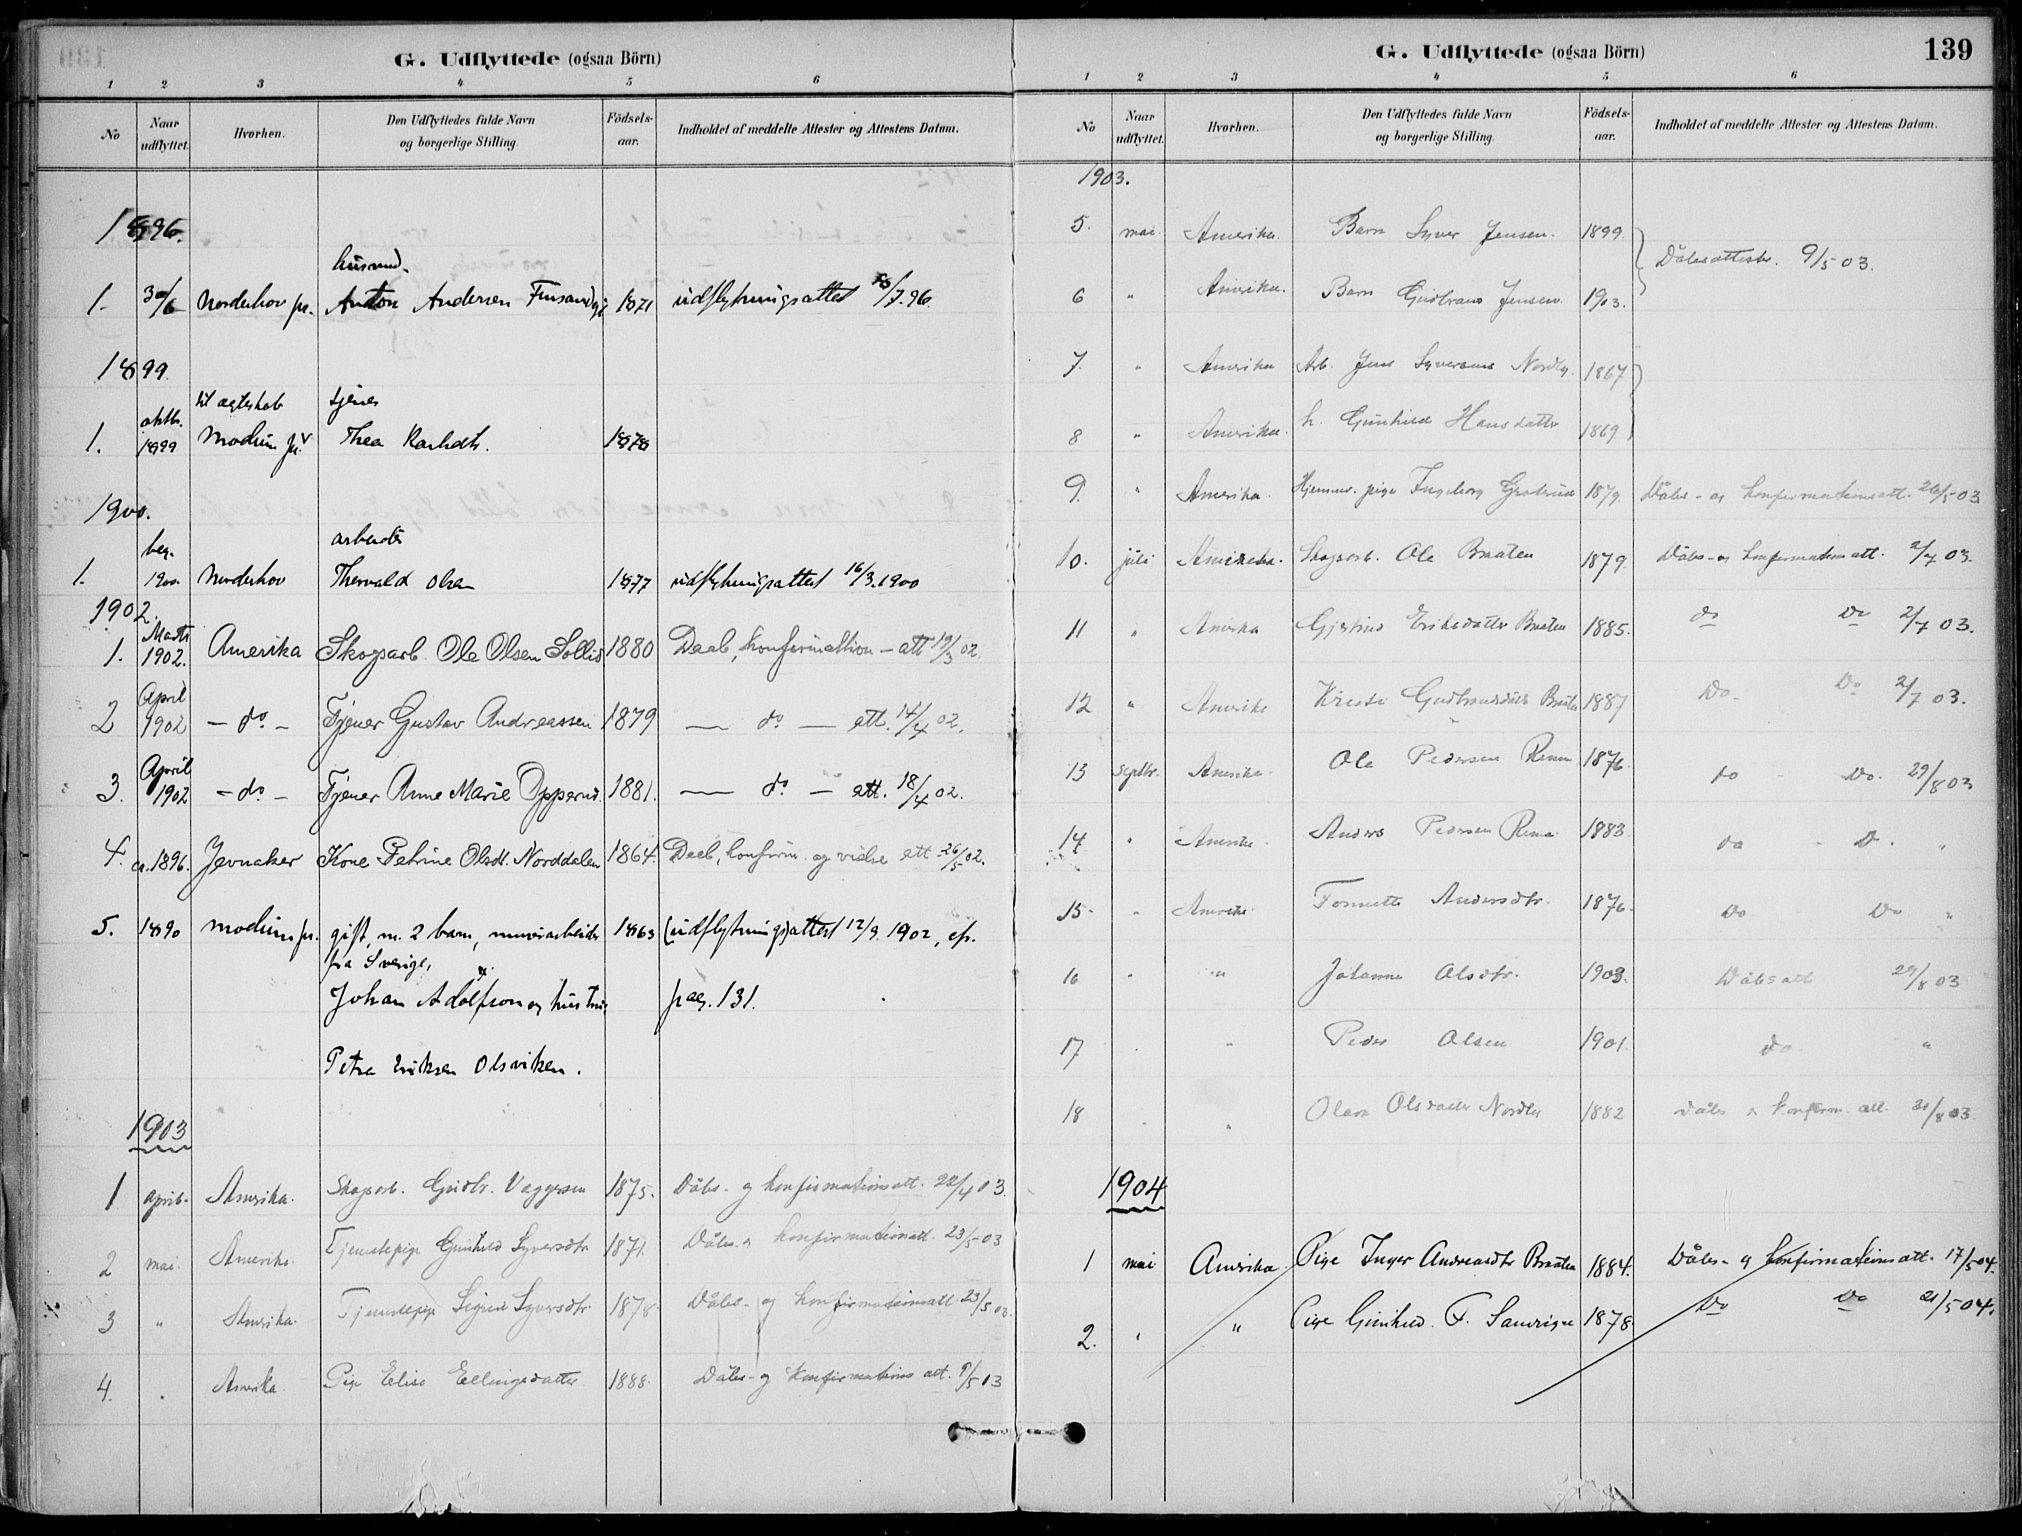 G. Udflyttede (ogsaa Börn)
1 2 3 4 5 6
No Naar udflyttet. Hvorhen. Den Udflyttedes fulde Navn og borgerlige Stilling. Födsels-aar. Indholdet af meddelte Attester og Attestens Datum.
1896.
husmd.
1. 30/6 Norderhov pr. Anton Andersen 1871 udflytningsattest /7.96.
1899
til ægteskab tjener
1. oktbr. 1899 Modum pr. Thea Karlsdtr. 1878
1900.
arbeider
1. beg. 1900. Norderhov Thorvald Olsen 1877 udflytningsattest 16/3.1900
1902.
1. Marts 1902. Amerika Skogsarb. Ole Olsen Sollid 1880 Daab, konfirmation - att 19/3 02.
2 April 1902 - do - Tjener Gustav Andreassen 1879 — do — att. 14/4 02.
3. April 1902 - do - Tjener Anne Marie Opperud. 1881. — do — att. 18/4 02.
4. ca. 1896. Jevnaker Kone Petrine Olsdt. Norddalen 1864. Daab, konfirm. og vielse att 26/5 02.
5. 1890 Modum pr. gift, m. 2 barn, murerarbeider 1863 (udflytnings)attest 12/9. 1902, cfr.
fra Sverige,
Johan Adolfson og hustru pag. 131.
Petra Eriksen Olsviken.
1903
1 april. Amerika. Skogsarb. Gudbr. 1875. Dåbs- og konfirmationsatt. 22/4 03.
2 mai. Amerika. Tjenestepige Gunhild Syversdtr 1871. Dåbs. og konfirmationsatt. 23/5 03
3 " Amerika. Tjenestepige Sigrid Syversdtr 1878. Dåbs- og konfirmationsatt 23/5 03.
4. . Amerika. Pige Elise Ellingsdatter 1888. Dåbs- og konfirmations att. 9/5 03
G. Udflyttede (ogsaa Börn) 139
1 2 3 4 5 6
No Naar udflyttet. Hvorhen. Den Udflyttedes fulde Navn og borgerlige Stilling. Födsels-aar. Indholdet af meddelte Attester og Attestens Datum.
1903.
5. mai. Amerika. Barn Syver Jensen. 1899. Dåbsattester. 9/5 03.
6 " Amerika. Barn Gudbrand Jensen 1903.
7. " Amerika Arb. Jens Syversens Nordby. 1867
8 " Amerika. h. Gunhild Hansdatter 1869
9. " Amerika. Hjemmev. pige Ingeborg 1879. Dåbs- og konfirmationsatt. 26/5 03
10. juli Amerika. Skogsarb. Ole Braaten 1879. Dåbs- og konfirmationsatt. 2/7 03.
11 " Amerika Eriksdatter Braaten 1885. do Do 2/7 03.
12 " Amerika Kristi Gudbrandsdatter Braaten 1887 Do. Do 2/7 03.
13 septbr. Amerika. Ole Pedersen 1876. do - Do. 29/8 03
14 " Amerika. Anders Pedersen 1883. do - D. "
15. " Amerika Andersdtr. 1876. Do. Do "
16 " " Johanne Olsdtr. 1903. Dåbsatt 29/8 03
17 . " Peder Olsen 1901. do. "
18 . " Olava Olsdatter Nordby 1882 Dåbs & konfirm. att. 31/8 03.
1904
1 mai Amerika. Pige Inger Andreasdtr Braaten 1884. Dåbs- og konfirmationsatt. 17/5 04.
2. " " Pige Gunhild. F. 1878 Do Do 21/5 04.